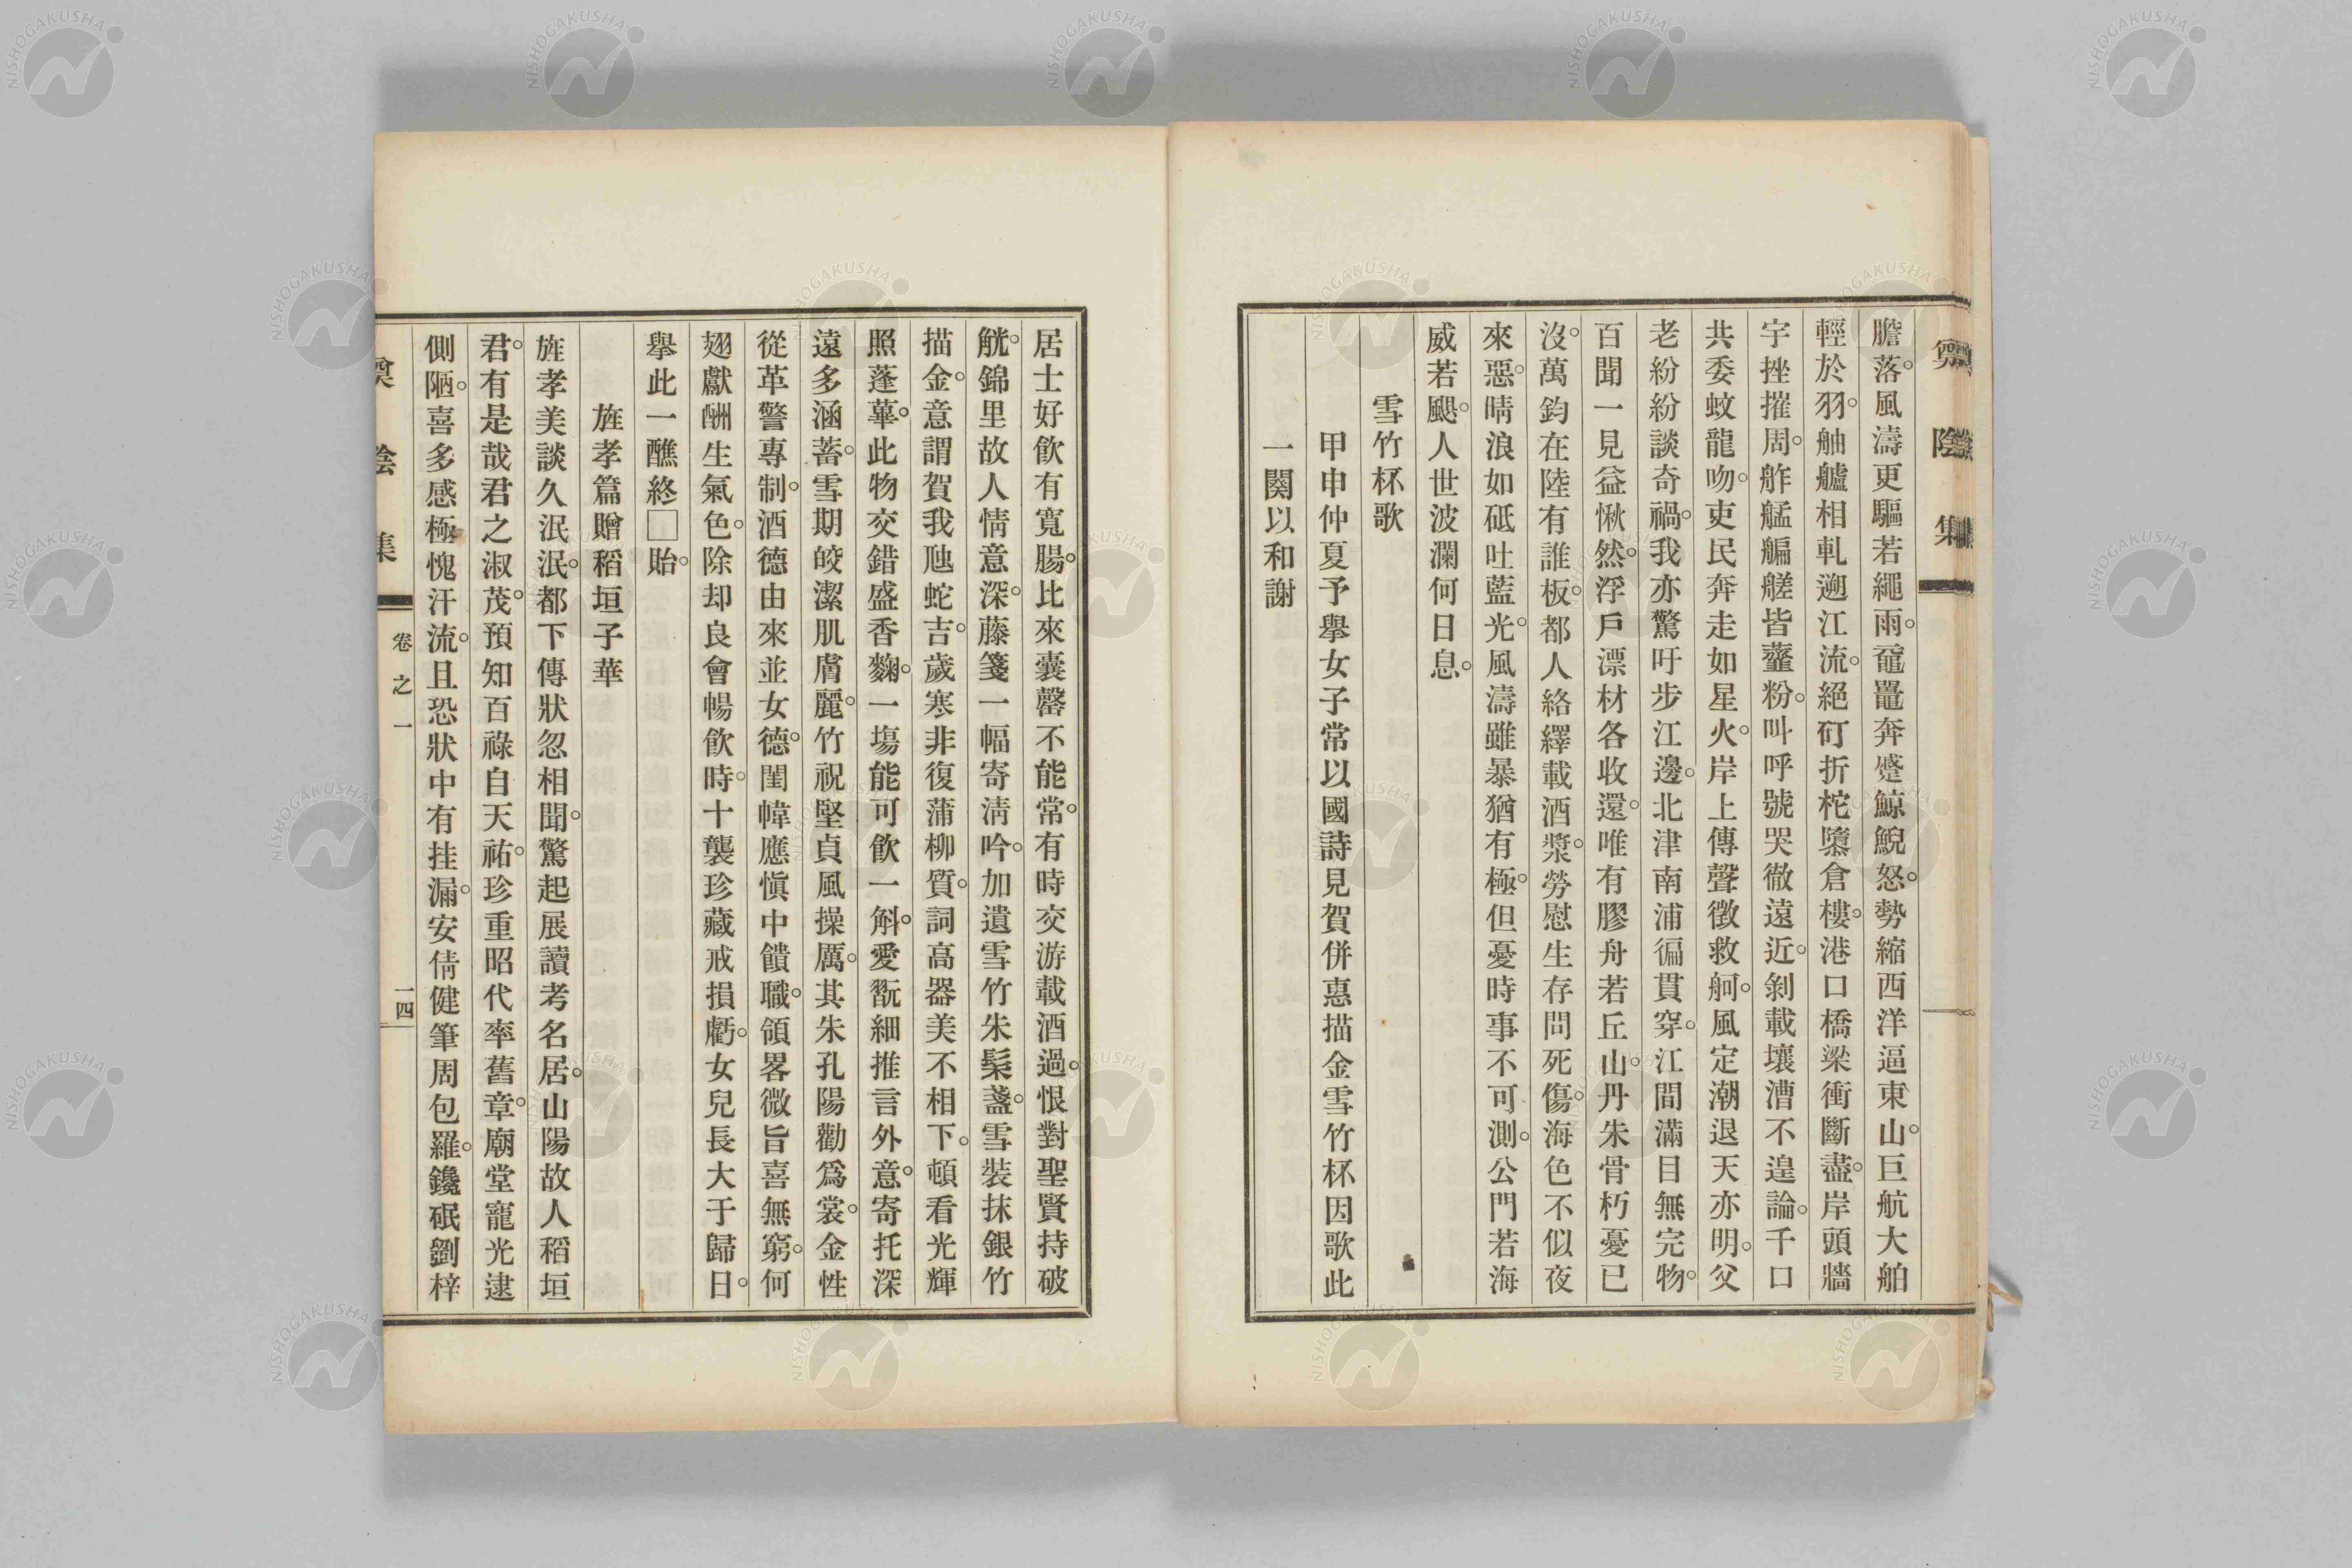 奠陰集
膽落。風濤更驅若繩雨。黿鼉奔蹙鯨鯢怒。勢縮西洋逼東山。巨航大舶
輕於羽。舳艫相軋遡江流。絕矴折柁隳倉樓。港口橋梁衝斷盡。岸頭牆
宇挫摧周。舴艋艑艖皆虀粉。叫呼號哭徹遠近。剝載壞漕不遑論。千口
共委蛟龍吻。吏民奔走如星火。岸上傳聲徵救舸。風定潮退天亦明。父
老紛紛談奇禍。我亦驚吁步江邊。北津南浦徧貫穿。江間滿目無完物。
百聞一見益愀然。浮戶漂材各收還。唯有膠舟若丘山。丹朱骨朽憂已
沒。萬鈞在陸有誰板。都人絡繹載酒漿。勞慰生存問死傷。海色不似夜
來惡。晴浪如砥吐藍光。風濤雖暴猶有極。但憂時事不可測。公門若海
威若颶。人世波瀾何日息。
雪竹杯歌
甲申仲夏予擧女子常以國詩見賀併惠描金雪竹杯因歌此
一闋以和謝
居士好飲有寬腸。比來囊罄不能常。有時交游載酒過。恨對聖賢持破
觥。錦里故人情意深。藤箋一幅寄淸吟。加遺雪竹朱髹盞。雪裝抹銀竹
描金。意謂賀我虺蛇吉。歲寒非復蒲柳質。詞高器美不相下。頓看光輝
照蓬蓽。此物交錯盛香麴。一塲能可飲一斛。愛翫細推言外意。寄托深
遠多涵蓄。雪期皎潔肌膚麗。竹祝堅貞風操厲。其朱孔陽勸爲裳。金性
從革警專制。酒德由來並女德。閨幃應愼中饋職。領畧微旨喜無窮。何
翅獻酬生氣色。除却良會暢飮時。十襲珍藏戒損虧。女兒長大于歸日。
擧此一醮終□貽。
旌孝篇贈稻垣子華
旌孝美談久泯泯。都下傳狀忽相聞。驚起展讀考名居。山陽故人稻垣
君。有是哉君之淑茂。預知百祿自天祐。珍重昭代率舊章。廟堂寵光逮
側陋。喜多感極愧汗流。且恐狀中有挂漏。安倩健筆周包羅。鑱珉劉梓
奠陰集
卷之一
一四